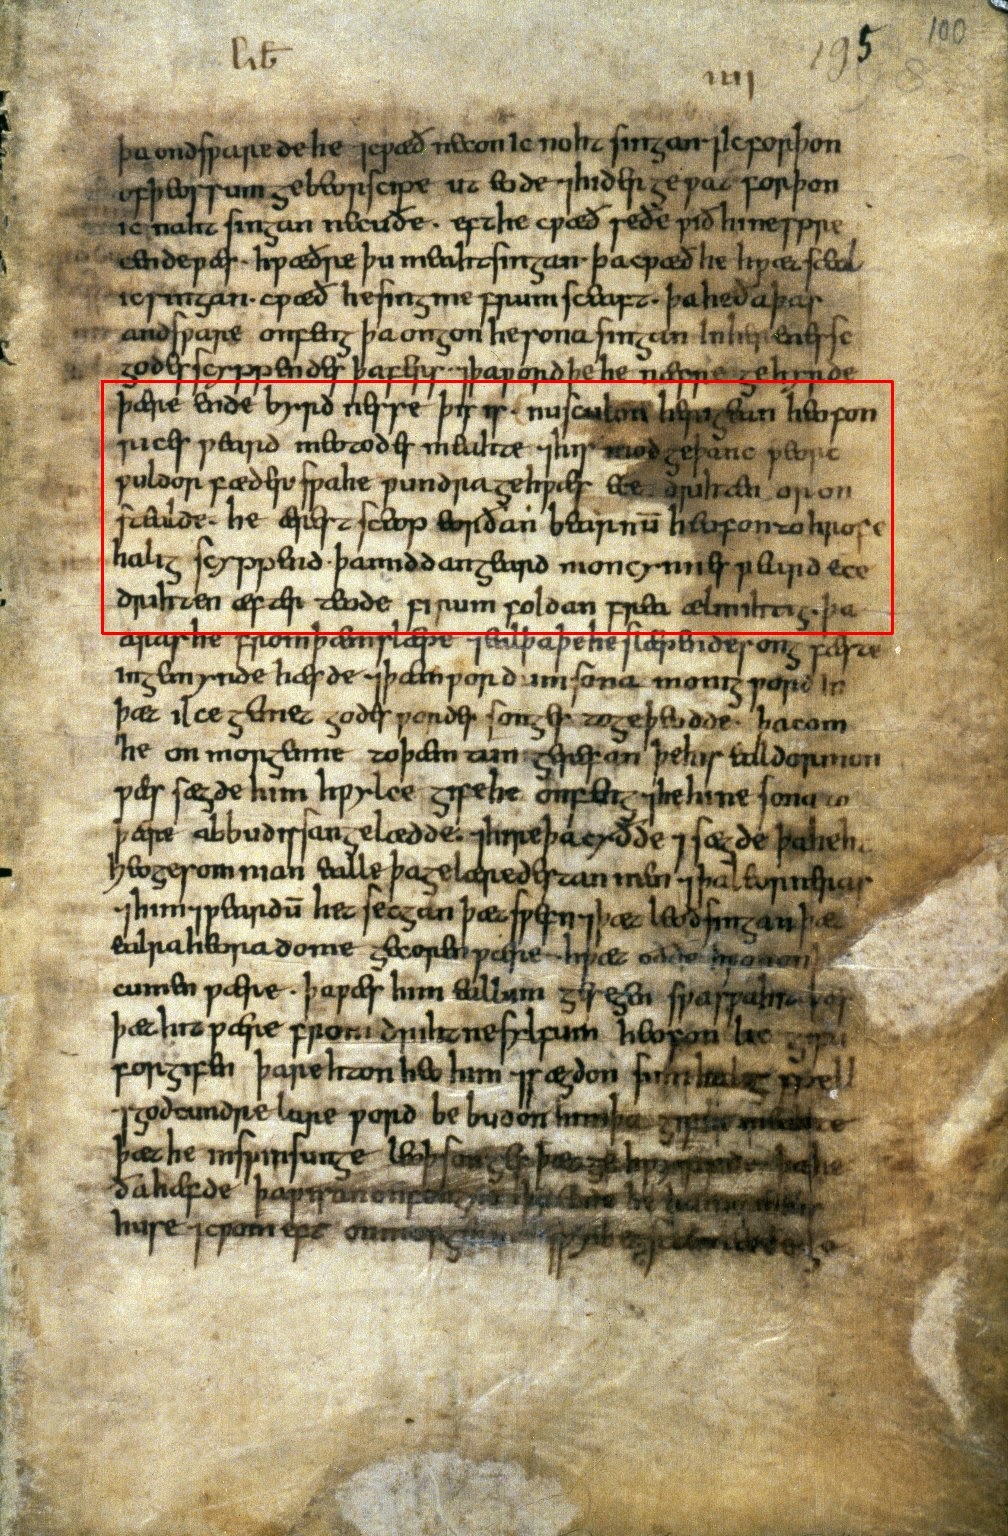 195
100
liƀ
iiii
þa ondsƿarede he ⁊ cƿæð ne con ic noht singan ⁊ ic forþon
of þeossum gebeorscipe ut eode ⁊ hider geƿat forþon
ic naht singan ne cuðe · eft he cƿæð se ðe ƿið hine sprecende
ƿæs · hƿæðre þu meaht singan þa cƿæð he hƿæt sceal
ic singan · cƿæð he sing me frumsceaft · þa he ða þas
andsƿare onfeng þa ongon he sona singan in herenesse
godes scyppendes þa fers ⁊ þa ƿord þe he næfre gehyrde
þære endebyrdnesse þis is · nu sculon herigean heofon
rices ƿeard meotodes meahte ⁊ his modgeþanc ƿeorc
ƿuldorfæder sƿa he ƿundra gehƿæs ece drihten or on
stealde · he ærest sceop eorðan bearnū heofon to hrofe
halig scyppend · þa middangeard moncynnes ƿeard ece
drihten æfter teode firum foldan frea ælmihtig · þa
aras he from þæm slæpe ⁊ eal þa þe he slæpende song fæste
in gemynde hæfde ⁊ þæm ƿordum sona monig ƿord in
þæt ilce gemet gode ƿyrðes songes togeþeodde · þa com
he on morgenne to þæm tungerefan þe his ealdormon
ƿæs sægde him hƿylce gife he onfeng ⁊ he hine sona to
þære abbudissan gelædde · ⁊ hire þa cyðde ⁊ sægde þa heht
heo gesomnian ealle þa gelæredestan men ⁊ þa leorneras
⁊ him ⁊ƿeardū het secgan þæt sƿefn ⁊ þæt leoð singan þæt
ealra heora dome gecoren ƿære · hƿæt oððe hƿonon
cumen ƿære · þa ƿæs him eallum gesegen sƿa sƿa hit ƿæs
þæt hit ƿære from drihtne sylfum heofonlic gifu
forgifen þa rehton heo him ⁊ sægdon sum halig spell
⁊ godcundre lare ƿord bebudon him þa gif he meahte
þæt he in sƿinsunge leoþsonges þæt gehƿyrfde þa he
ða hæfde þa ƿisan onfongne þa eode he ham to his
huse ⁊ cƿom eft on morgenne